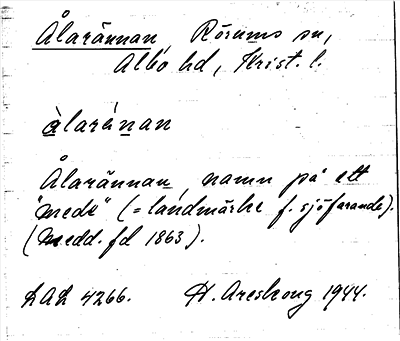 Ålarännan, Rörums sn,
Albo hd, Krist. l.
àlaránan
Ålarännan, namn på ett
"meds" (= landmärke f. sjöfarande).
(Medd. fd 1863).
LAL 4266. H. Areskoug 1944.